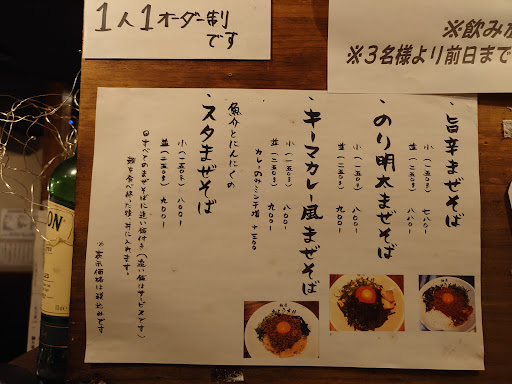 1人1オーダー制
です
※飲み
※3名様より前日まで
・旨辛まぜそば
小(一五〇g) 七八〇-
並(二五〇g) 八八〇-
・のり明太まぜそば
小(一五〇g) 八〇〇-
並(二五〇g) 九〇〇-
・キーマカレー風まぜそば
小(一五〇g) 八〇〇-
並(二五〇g) 九〇〇-
魚介とにんにくの
・スタまぜそば
小(一五〇g) 八〇〇-
並(二五〇g) 九〇〇-
◎すべてのまぜそばに追い飯付き(追い飯はサービスです)
麺を食べ終った後、丼に入れます。
※表示価格は税込みです